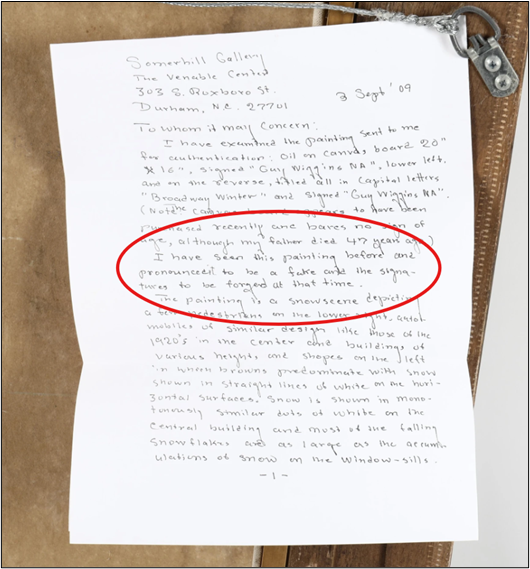 Somerhill Gallery
The Venable Center
303 S. Roxboro St.
Durham, N.C. 27701
3 Sept '09
To whom it may Concern:
I have examined the painting sent to me
for authentication: Oil on canvas, board 20"
X 16", signed "Guy Wiggins NA", lower left,
and on the reverse, titled all in Capital letters
"Broadway Winter" and signed "Guy Wiggins NA".
(Note: The canvas board appears to have been
purchased recently and bares no sign of
age, although my father died 47 years ago)
I have seen this painting before and
pronounced it to be a fake and the signa-
tures to be forged at that time.
The painting is a snowscene depicting
a few pedestrians on the lower right, auto-
mobiles of similar design like those of the
1920's in the center and buildings of
various heights, and shapes on the left
in which browns predominate with snow
shown in straight lines of white on the hori-
zontal surfaces. Snow is shown in mono-
tonously similar dots of white on the
central building and most of the falling
snowflakes are as large as the accum-
ulations of snow on the window-sills.
-1-